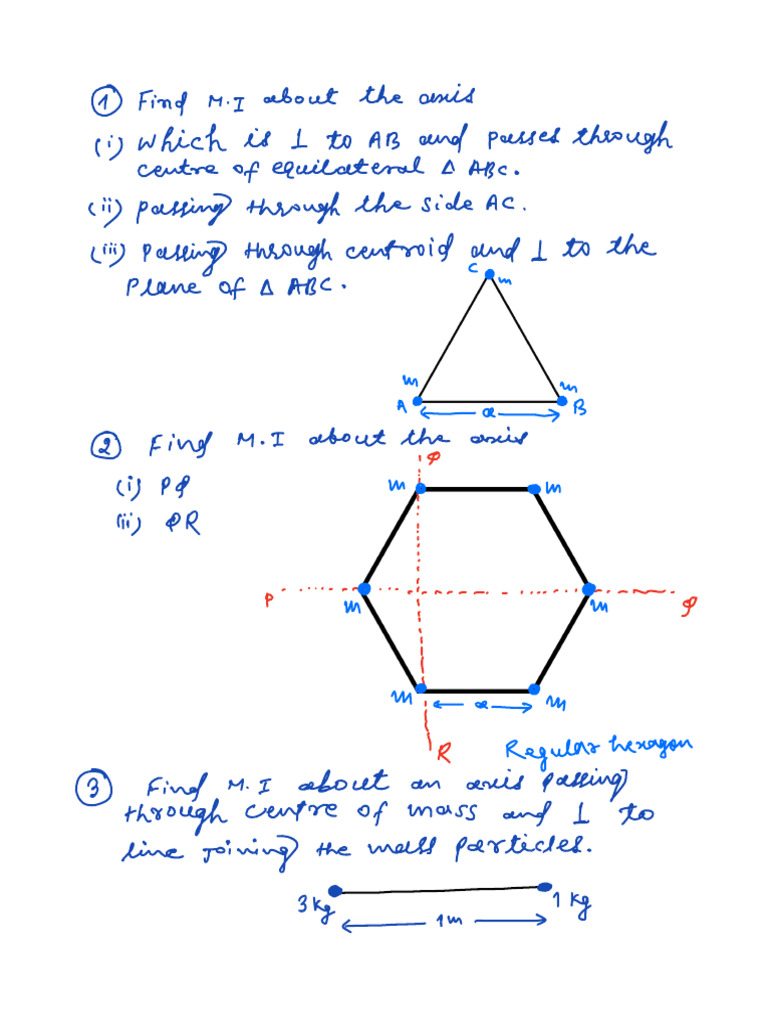 ① Find M.I about the axis
(i) which is ⊥ to AB and passes through
centre of equilateral Δ ABC.
(ii) passing through the side AC.
(iii) Passing through centroid and ⊥ to the
Plane of Δ ABC.
C
m
m
m
A
a
B
② Find M.I about the axis
(i) PQ
(ii) QR
Q
m
m
P
m
m
Q
m
a
m
R
Regular hexagon
③ Find M.I about an axis passing
through centre of mass and ⊥ to
line joining the mass particles.
3 kg
1 kg
1m